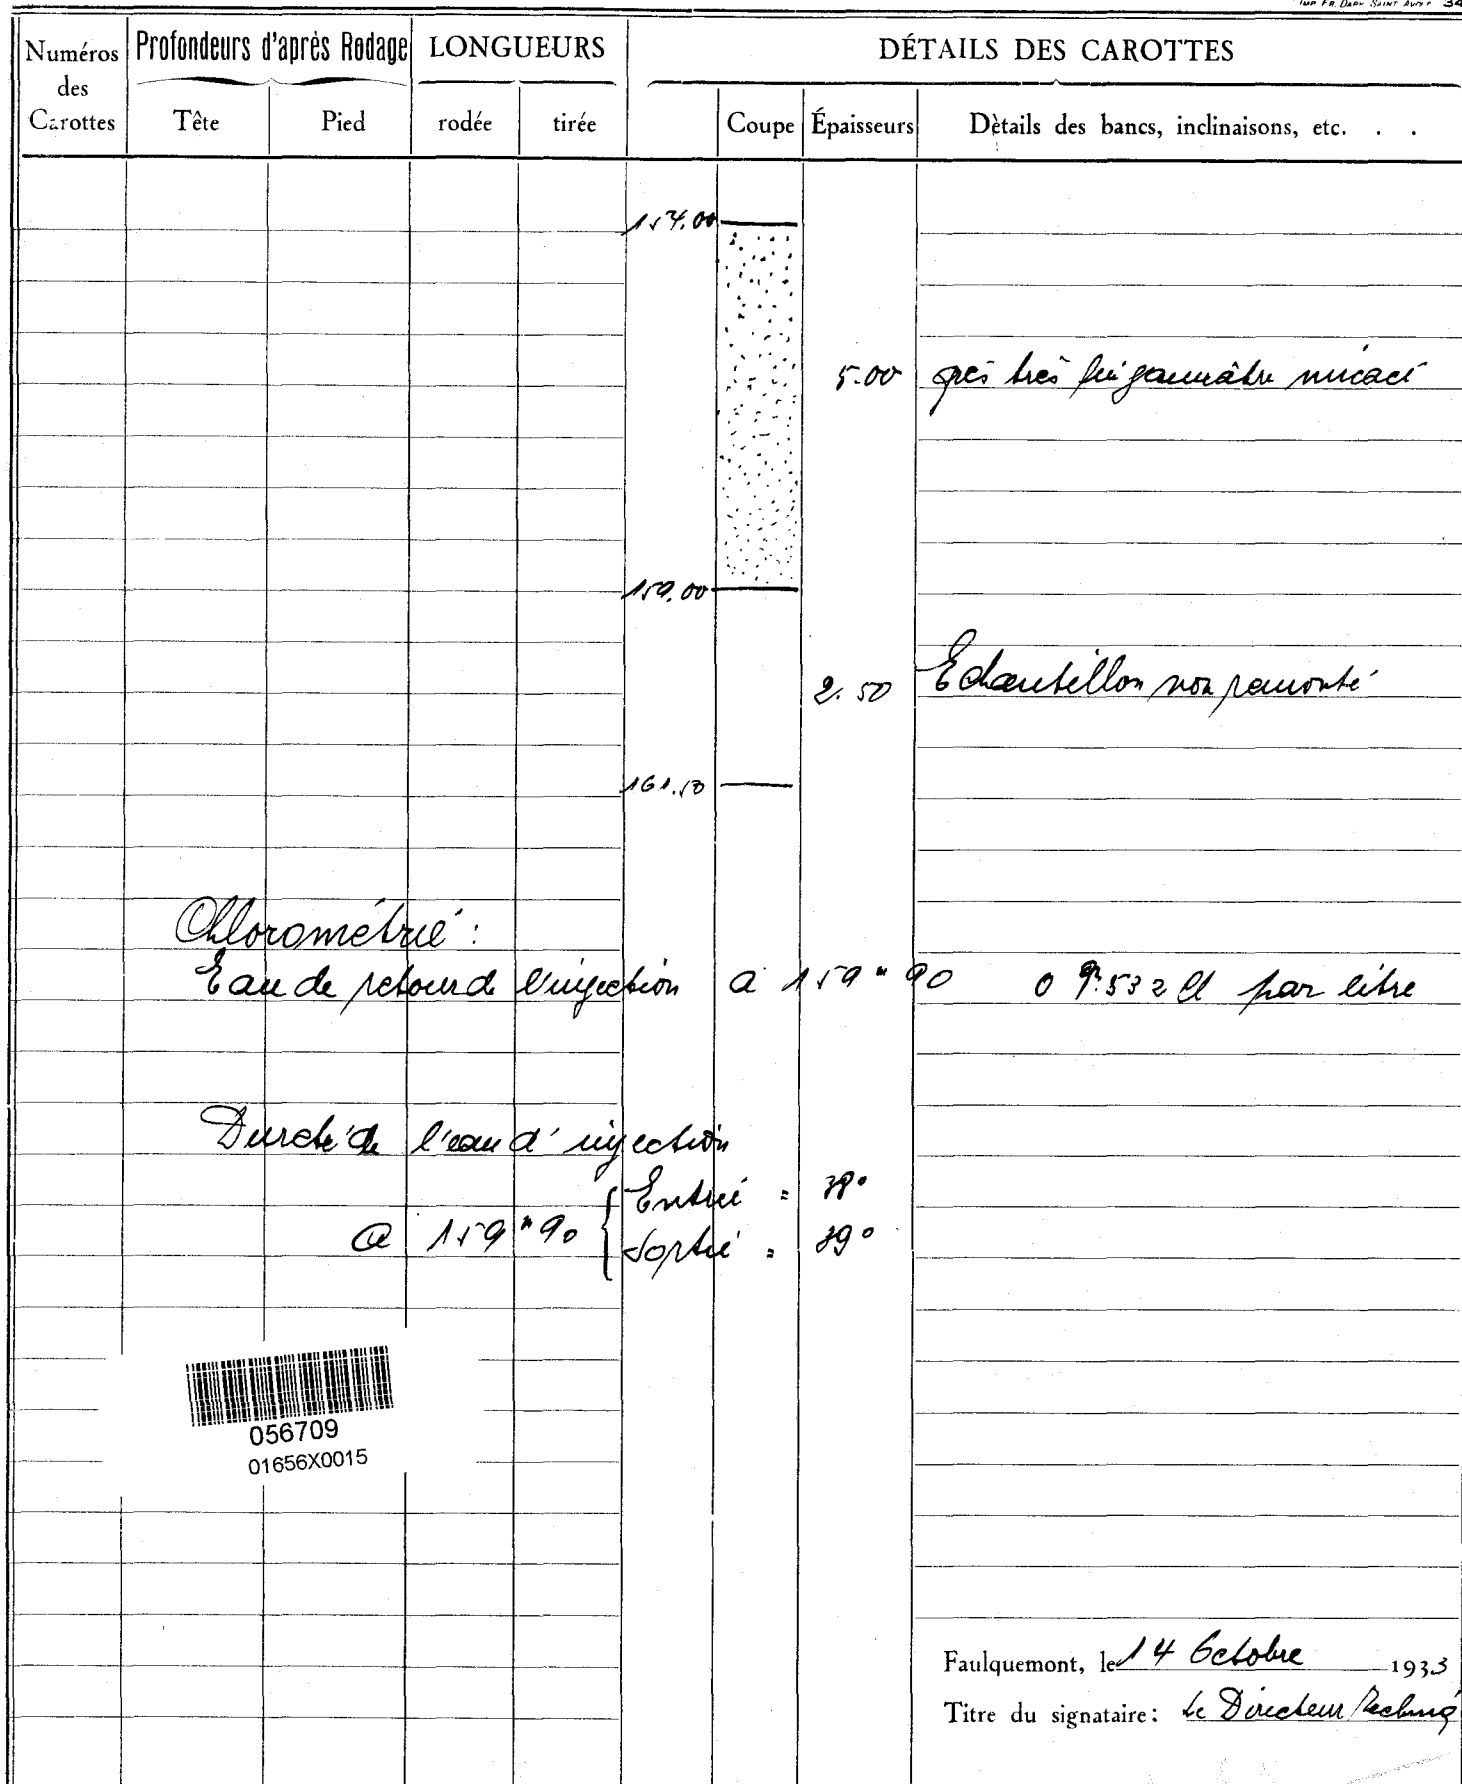 IMP. FR. DARY SAINT AVOLD 34
Numéros des Carottes
Profondeurs d'après Rodage
LONGUEURS
DÉTAILS DES CAROTTES
Tête
Pied
rodée
tirée
Coupe
Épaisseurs
Dètails des bancs, inclinaisons, etc. . .
154.00
5.00 grès très fin jaunâtre micacé
159.00
2.50 Echantillon non remonté
161.50
Chlorométrie :
Eau de retour de l'injection à 159 m 90 0 gr. 532 Cl par litre
Dureté de l'eau d'injection
à 159 m 90 { Entrée = 38°
Sortie = 39°
056709
01656X0015
Faulquemont, le 14 Octobre 1933
Titre du signataire : Le Directeur